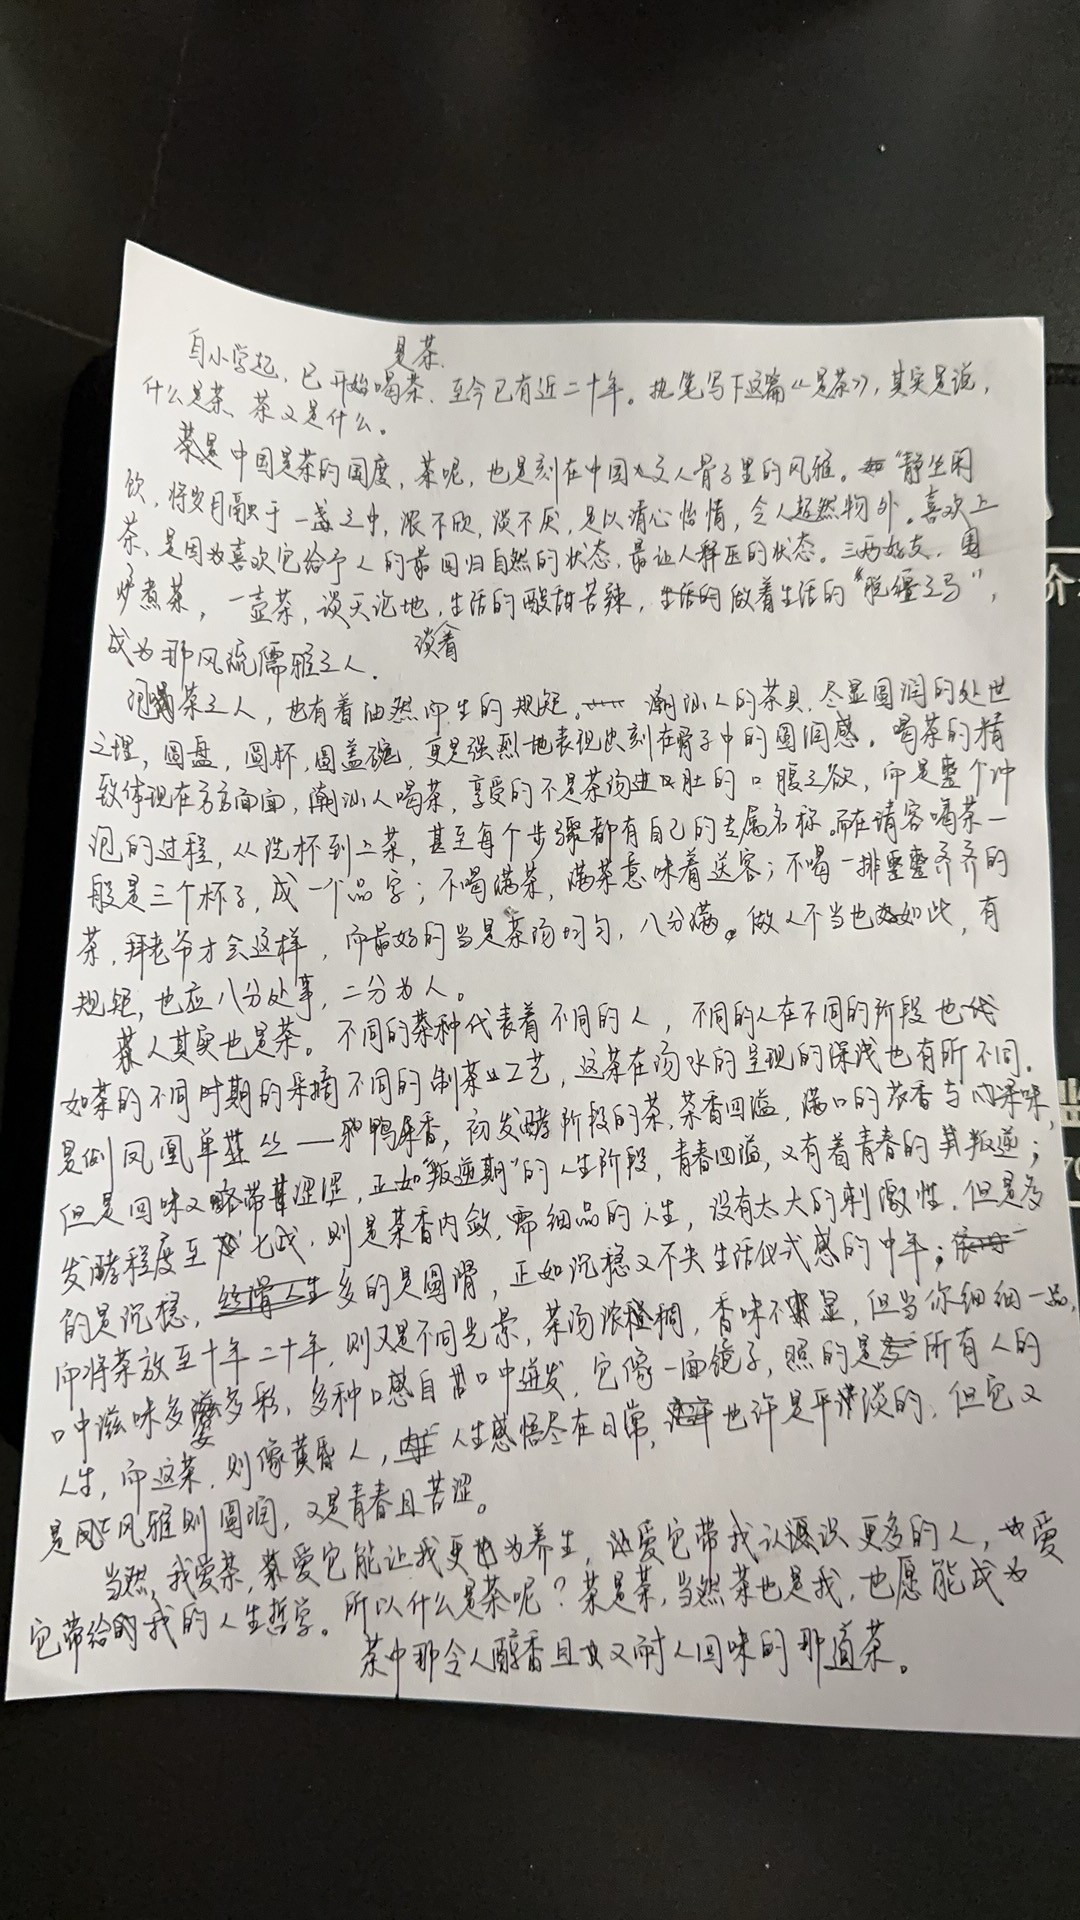 是茶
自小学起，已开始喝茶，至今已有近二十年。执笔写下这篇《是茶》，其实是说，
什么是茶、茶又是什么。
中国是茶的国度，茶呢，也是刻在中国文人骨子里的风雅。"静坐闲
饮，将岁月融于一盏之中，浓不欣，淡不厌，是以清心怡情，令人超然物外。喜欢上
茶，是因为喜欢它给予人的最回归自然的状态，最让人释压的状态。三两好友，围
炉煮茶，一壶茶，谈天论地，生活的酸甜苦辣，生活的做着生活的"脱缰之马"，
谈着
成为那风流儒雅之人。
泡茶之人，也有着油然而生的规矩。潮汕人的茶具，尽显圆润的处世
之理，圆盘，圆杯，圆盖碗，更是强烈地表现出刻在骨子中的圆润感。喝茶的精
致体现在方方面面，潮汕人喝茶，享受的不是茶汤进肚的口腹之欲，而是整个冲
泡的过程，从洗杯到上茶，甚至每个步骤都有自己的专属名称。而在请客喝茶一
般是三个杯子，成一个品字；不喝满茶，满茶意味着送客；不喝一排整整齐齐的
茶，拜老爷才会这样，而最好的当是茶汤均匀，八分满。做人不当也如此，有
规矩，也应八分处事，二分为人。
人其实也是茶。不同的茶种代表着不同的人，不同的人在不同的阶段也
如茶的不同时期的采摘不同的制茶工艺，这茶在汤水的呈现的深浅也有所不同。
是例凤凰单丛——鸭屎香，初发酵阶段的茶，茶香四溢，满口的浓香与深味，
但是回味又略带涩涩，正如"叛逆期"的人生阶段，青春四溢，又有着青春的叛逆；
发酵程度至七成，则是茶香内敛，需细品的人生，没有太大的刺激性，但是多
的是沉稳，多的是圆滑，正如沉稳又不失生活仪式感的中年；
而将茶放至十年二十年，则又是不同光景，茶汤浓稠，香味不显，但当你细细一品，
口中滋味多姿多彩，多种口感自口中迸发，它像一面镜子，照的是所有人的
人生，而这茶，则像黄昏人，人生感悟尽在日常，也许是平淡的，但它又
是风雅则圆润，又是青春且苦涩。
当然，我爱茶，爱它能让我更为养生，爱它带我认识更多的人，也爱
它带给我的人生哲学。所以什么是茶呢？茶是茶，当然茶也是我，也愿能成为
茶中那令人醇香且又耐人回味的那道茶。